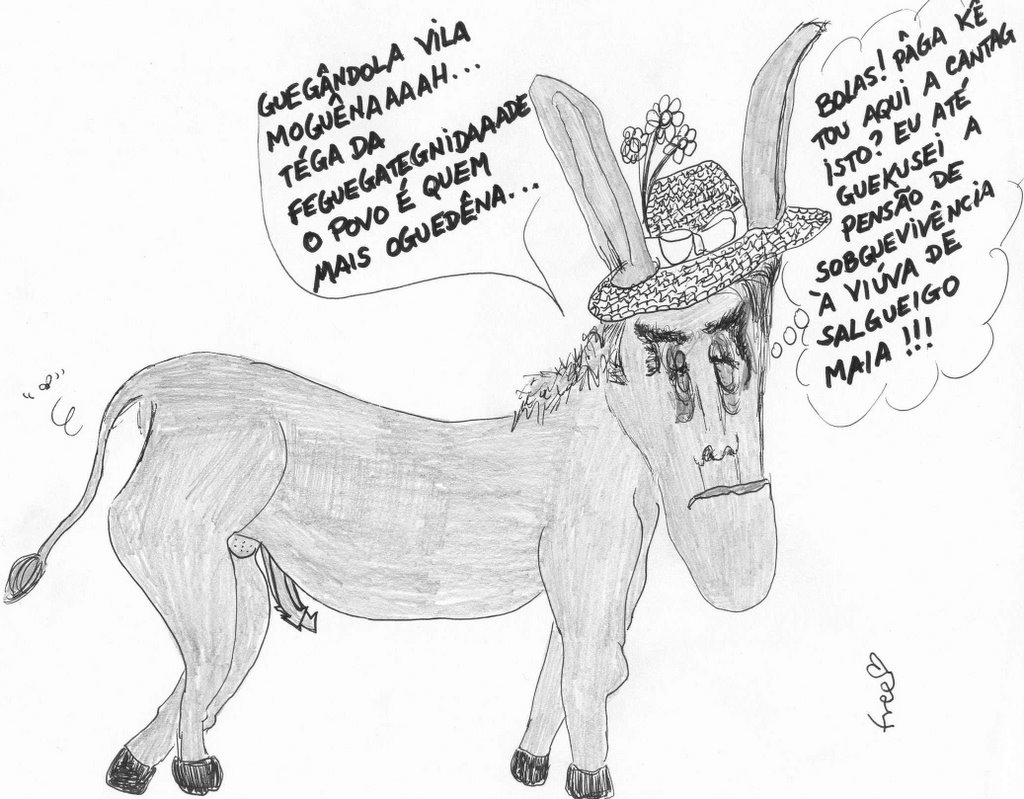 GUEGÂNDOLA VILA
MOGUÊNAAAAH...
TÉGA DA
FEGUEGATEGNIDAAADE
O POVO É QUEM
MAIS OGUEDÊNA...
BOLAS! PÂGA KÊ
TOU AQUI A CANTAG
ISTO? EU ATÉ
GUEKUSEI A
PENSÃO DE
SOBGUEVIVÊNCIA
À VIÚVA DE
SALGUEIGO
MAIA !!!
free